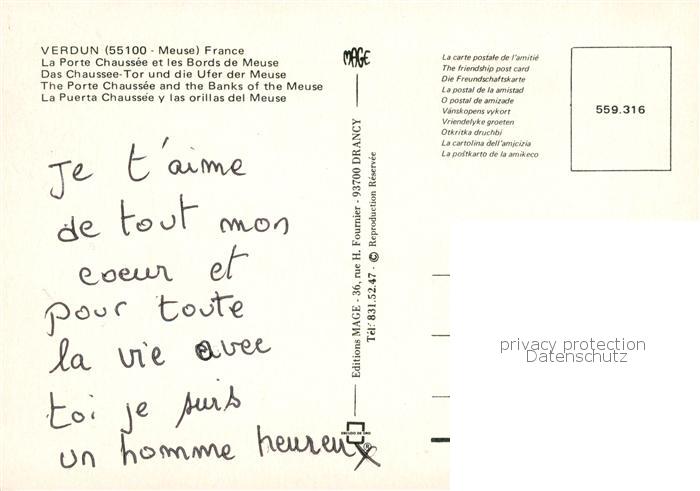 VERDUN (55100 - Meuse) France
La Porte Chaussée et les Bords de Meuse
Das Chaussee-Tor und die Ufer der Meuse
The Porte Chaussée and the Banks of the Meuse
La Puerta Chaussée y las orillas del Meuse
Je t'aime
de tout mon
coeur et
pour toute
la vie avec
toi je suis
un homme heureux
MAGE
Editions MAGE - 36, rue H. Fournier - 93700 DRANCY
Tél: 831.52.47 - © Reproduction Réservée
La carte postale de l'amitié
The friendship post card
Die Freundschaftskarte
La postal de la amistad
O postal de amizade
Vänskopens vykort
Vriendelyke groeten
Otkritka druchbi
La cartolina dell'amicizia
La poŝtkarto de la amikeco
559.316
privacy protection
Datenschutz